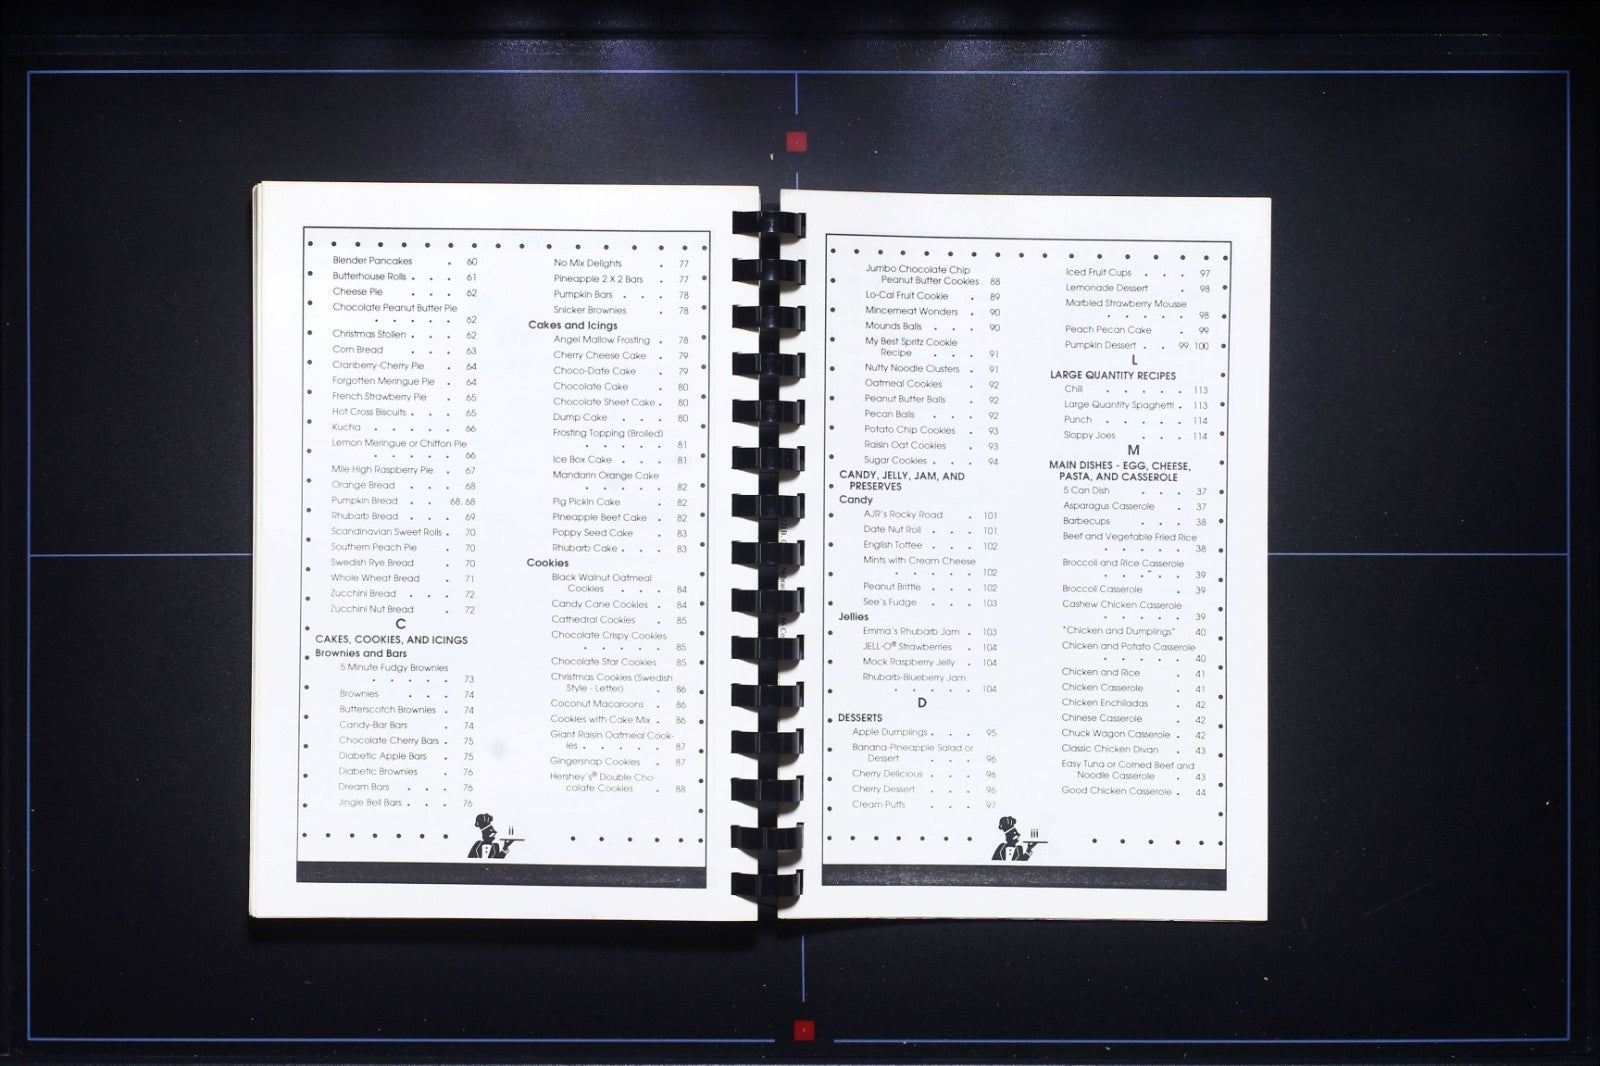 Blender Pancakes . 60
Butterhouse Rolls . . . 61
Cheese Pie . . . 62
Chocolate Peanut Butter Pie
. . . . . 62
Christmas Stollen . . . 62
Corn Bread . . . 63
Cranberry-Cherry Pie . 64
Forgotten Meringue Pie . 64
French Strawberry Pie . 65
Hot Cross Biscuits . . . 65
Kucha . . . . . 66
Lemon Meringue or Chiffon Pie
. . . . . 66
Mile High Raspberry Pie . 67
Orange Bread . . . 68
Pumpkin Bread . . 68, 68
Rhubarb Bread . . . 69
Scandinavian Sweet Rolls . 70
Southern Peach Pie . 70
Swedish Rye Bread . 70
Whole Wheat Bread . 71
Zucchini Bread . . . 72
Zucchini Nut Bread . 72
C
CAKES, COOKIES, AND ICINGS
Brownies and Bars
5 Minute Fudgy Brownies
. . . . . 73
Brownies . . . 74
Butterscotch Brownies . 74
Candy-Bar Bars . 74
Chocolate Cherry Bars . 75
Diabetic Apple Bars . 75
Diabetic Brownies . 76
Dream Bars . . . 76
Jingle Bell Bars . . . 76
No Mix Delights . 77
Pineapple 2 X 2 Bars . 77
Pumpkin Bars . . . 78
Snicker Brownies . 78
Cakes and Icings
Angel Mallow Frosting . 78
Cherry Cheese Cake . 79
Choco-Date Cake . 79
Chocolate Cake . 80
Chocolate Sheet Cake . 80
Dump Cake . . . 80
Frosting Topping (Broiled)
. . . . . 81
Ice Box Cake . . . 81
Mandarin Orange Cake
. . . . . 82
Pig Pickin Cake . 82
Pineapple Beet Cake . 82
Poppy Seed Cake . 83
Rhubarb Cake . . . 83
Cookies
Black Walnut Oatmeal
Cookies . . . 84
Candy Cane Cookies . 84
Cathedral Cookies . 85
Chocolate Crispy Cookies
. . . . . 85
Chocolate Star Cookies 85
Christmas Cookies (Swedish
Style - Letter) . 86
Coconut Macaroons . 86
Cookies with Cake Mix . 86
Giant Raisin Oatmeal Cook-
ies . . . . . 87
Gingersnap Cookies . 87
Hershey's® Double Cho-
colate Cookies . 88
ii
Jumbo Chocolate Chip
Peanut Butter Cookies 88
Lo-Cal Fruit Cookie . 89
Mincemeat Wonders . 90
Mounds Balls . . . 90
My Best Spritz Cookie
Recipe . . . 91
Nutty Noodle Clusters . 91
Oatmeal Cookies . 92
Peanut Butter Balls . 92
Pecan Balls . . . 92
Potato Chip Cookies . 93
Raisin Oat Cookies . 93
Sugar Cookies . . . 94
CANDY, JELLY, JAM, AND
PRESERVES
Candy
AJR's Rocky Road . 101
Date Nut Roll . . . 101
English Toffee . . . 102
Mints with Cream Cheese
. . . . . 102
Peanut Brittle . . . 102
See's Fudge . . . 103
Jellies
Emma's Rhubarb Jam . 103
JELL-O® Strawberries . 104
Mock Raspberry Jelly . 104
Rhubarb-Blueberry Jam
. . . . . 104
D
DESSERTS
Apple Dumplings . . . 95
Banana-Pineapple Salad or
Dessert . . . 96
Cherry Delicious . . . 96
Cherry Dessert . . . 96
Cream Puffs . . . 97
Iced Fruit Cups . . . 97
Lemonade Dessert . 98
Marbled Strawberry Mousse
. . . . . 98
Peach Pecan Cake . 99
Pumpkin Dessert . . 99, 100
L
LARGE QUANTITY RECIPES
Chili . . . . . 113
Large Quantity Spaghetti . 113
Punch . . . . . 114
Sloppy Joes . . . 114
M
MAIN DISHES - EGG, CHEESE,
PASTA, AND CASSEROLE
5 Can Dish . . . 37
Asparagus Casserole . 37
Barbecups . . . 38
Beef and Vegetable Fried Rice
. . . . . 38
Broccoli and Rice Casserole
. . . . . 39
Broccoli Casserole . 39
Cashew Chicken Casserole
. . . . . 39
"Chicken and Dumplings" 40
Chicken and Potato Casserole
. . . . . 40
Chicken and Rice . 41
Chicken Casserole . 41
Chicken Enchiladas . 42
Chinese Casserole . 42
Chuck Wagon Casserole . 42
Classic Chicken Divan . 43
Easy Tuna or Corned Beef and
Noodle Casserole . 43
Good Chicken Casserole . 44
iii